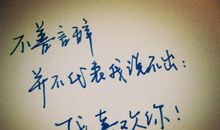 不善言辞
并不代表我说不出：
我喜欢你！